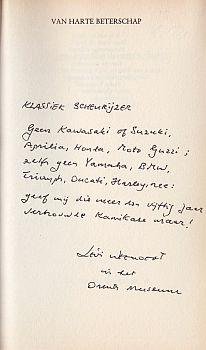 VAN HARTE BETERSCHAP
KLASSIEK SCHEURIJZER
Geen Kawasaki of Suzuki,
Aprilia, Honda, Moto Guzzi;
zelfs geen Yamaha, BMW,
Triumph, Ducati, Harley, nee:
geef mij die meer dan vijftig jaar
vertrouwde Kamikaze maar!
in het
Drents Museum